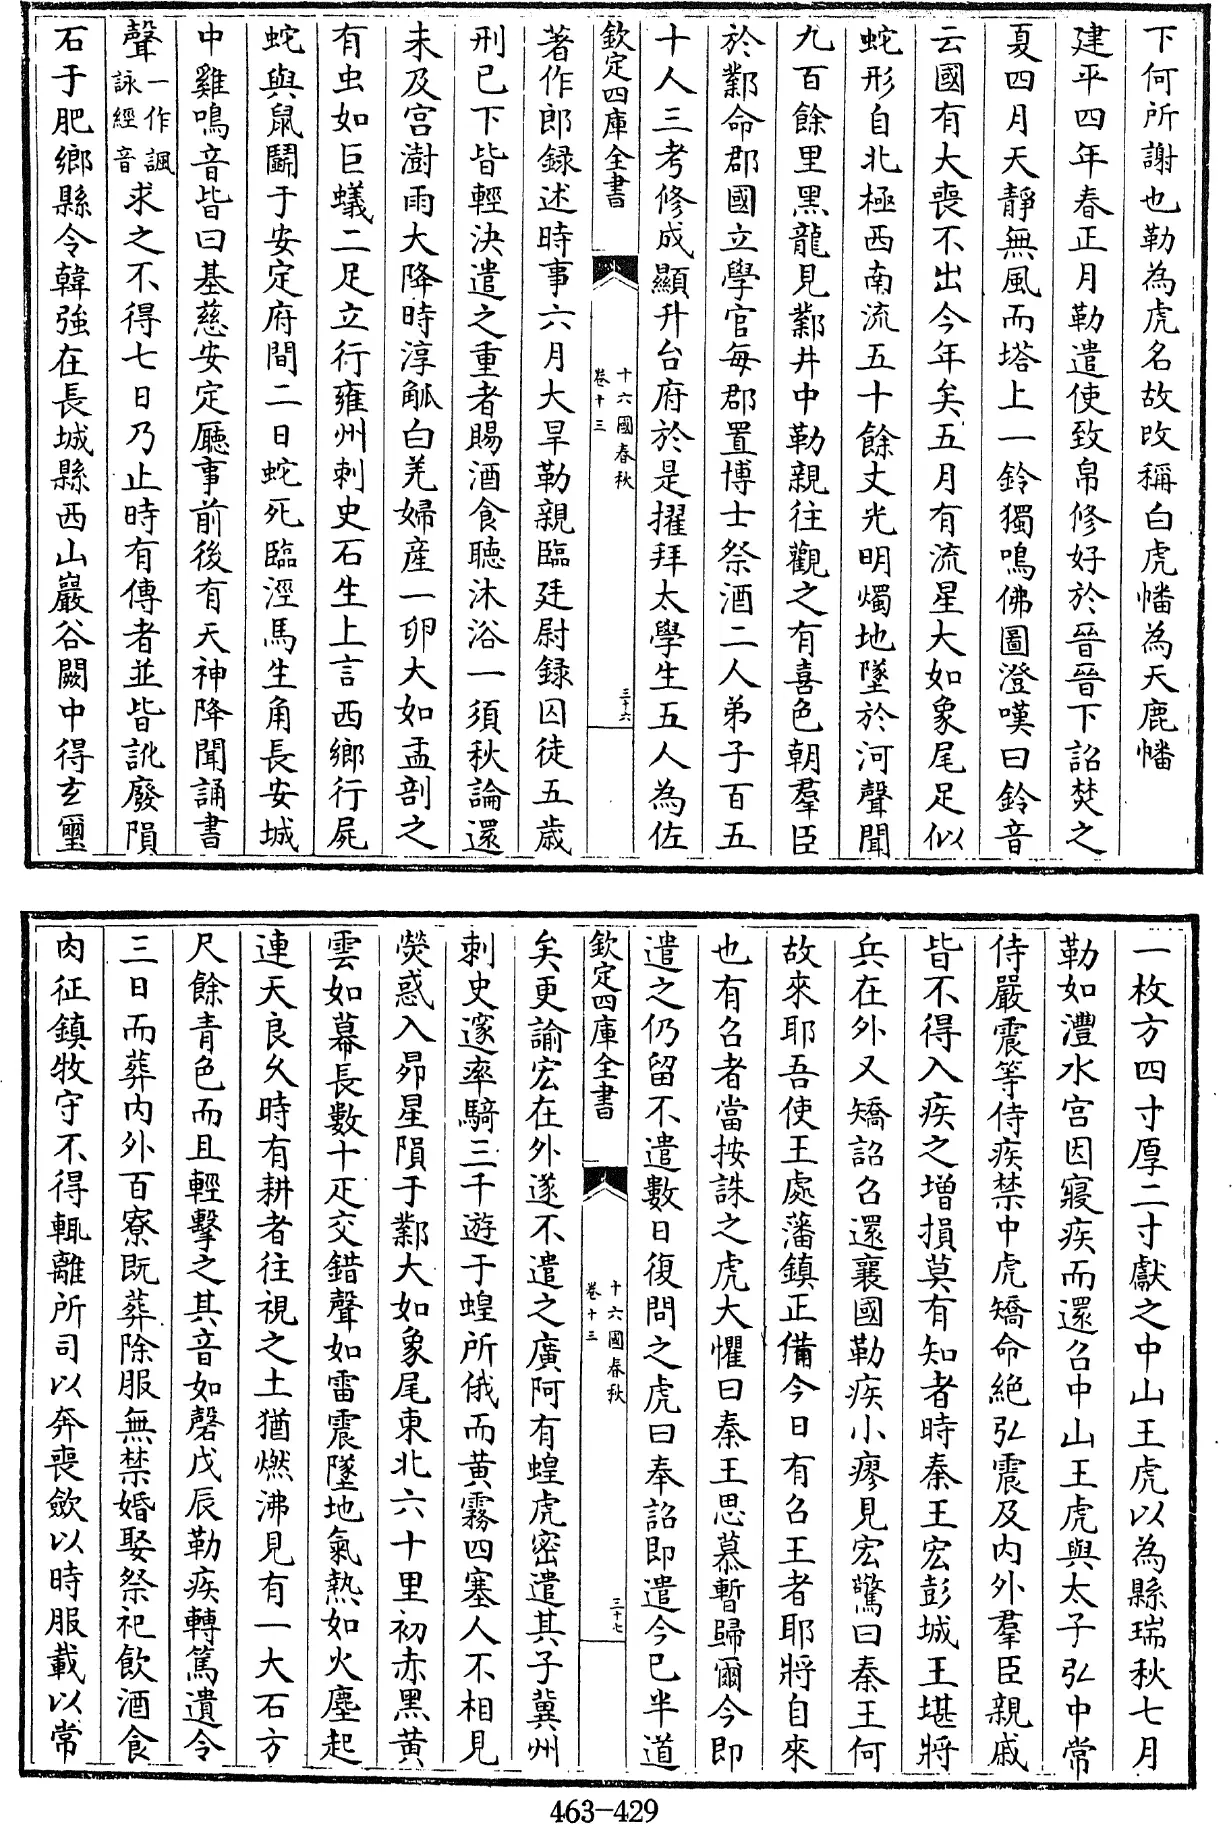 下何所謝也勒為虎名故改稱白虎幡為天鹿幡
建平四年春正月勒遣使致帛修好於晉晉下詔焚之
夏四月天靜無風而塔上一鈴獨鳴佛圖澄嘆曰鈴音
云國有大喪不出今年矣五月有流星大如象尾足似
蛇形自北極西南流五十餘丈光明燭地墜於河聲聞
九百餘里黑龍見鄴井中勒親往觀之有喜色朝羣臣
於鄴命郡國立學官每郡置博士祭酒二人弟子百五
十人三考修成顯升台府於是擢拜太學生五人為佐
欽定四庫全書
十六國春秋
卷十三
三十六
著作郎録述時事六月大旱勒親臨廷尉録囚徒五歲
刑已下皆輕決遣之重者賜酒食聽沐浴一須秋論還
未及宮澍雨大降時淳觚白羌婦産一卵大如盂剖之
有虫如巨蟻二足立行雍州刺史石生上言西鄉行屍
蛇與鼠鬭于安定府間二日蛇死臨涇馬生角長安城
中雞鳴音皆曰基慈安定廳事前後有天神降聞誦書
聲一作諷詠經音求之不得七日乃止時有傳者並皆訛廢隕
石于肥鄉縣令韓強在長城縣西山巖谷闕中得玄璽
一枚方四寸厚二寸獻之中山王虎以為縣瑞秋七月
勒如灃水宮因寢疾而還召中山王虎與太子弘中常
侍嚴震等侍疾禁中虎矯命絶弘震及內外羣臣親戚
皆不得入疾之增損莫有知者時秦王宏彭城王堪將
兵在外又矯詔召還襄國勒疾小瘳見宏驚曰秦王何
故來耶吾使王處藩鎮正備今日有召王者耶將自來
也有召者當按誅之虎大懼曰秦王思慕暫歸爾今即
遣之仍留不遣數日復問之虎曰奉詔即遣今已半道
欽定四庫全書
十六國春秋
卷十三
三十七
矣更諭宏在外遂不遣之廣阿有蝗虎密遣其子冀州
刺史邃率騎三千遊于蝗所俄而黃霧四塞人不相見
熒惑入昴星隕于鄴大如象尾東北六十里初赤黑黃
雲如幕長數十疋交錯聲如雷震墜地氣熱如火塵起
連天良久時有耕者往視之土猶燃沸見有一大石方
尺餘青色而且輕擊之其音如磬戊辰勒疾轉篤遺令
三日而葬內外百寮既葬除服無禁婚娶祭祀飲酒食
肉征鎮牧守不得輒離所司以奔喪斂以時服載以常
463-429